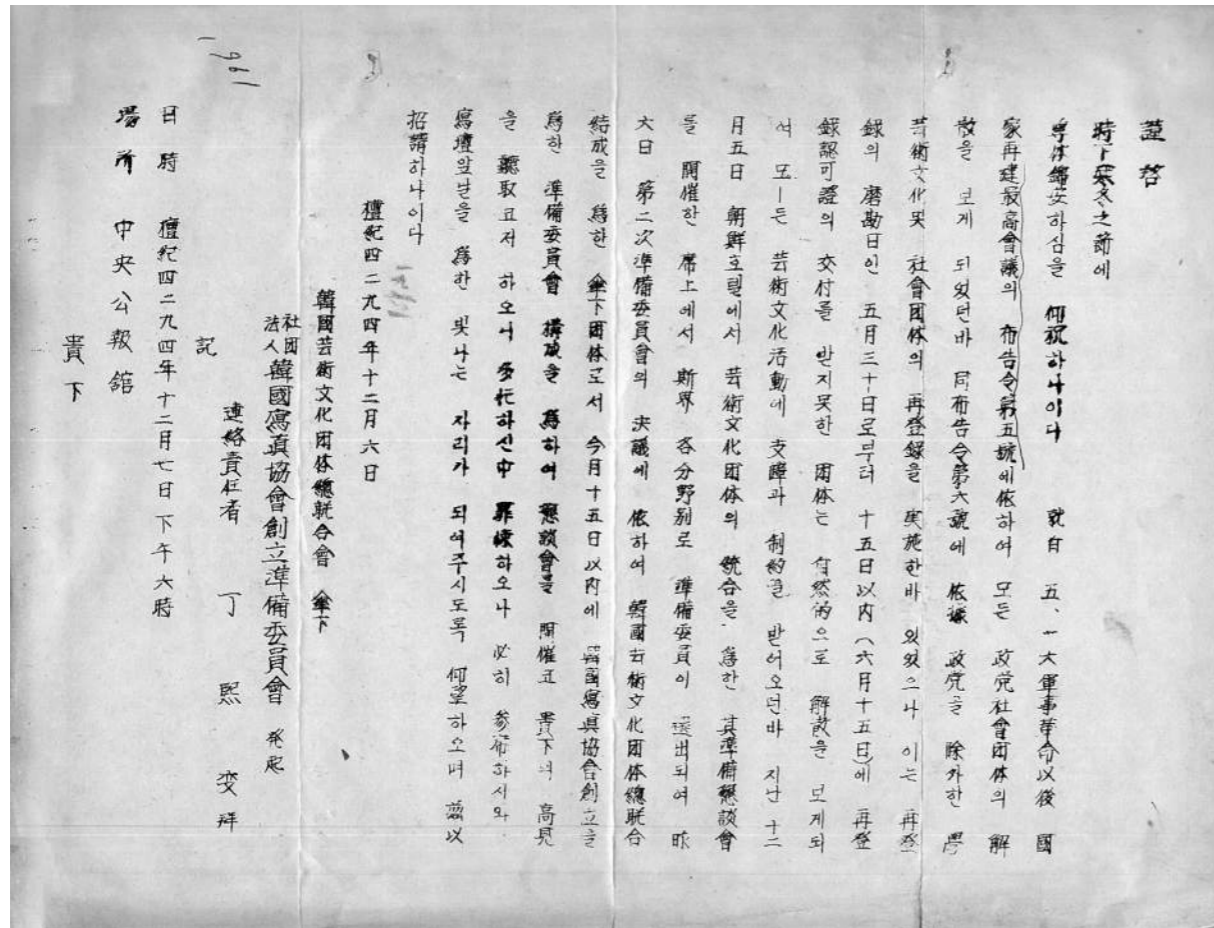 謹啓
時下寒冬之節에
尊体錦安하심을 仰祝하나이다 就白 五、一六軍事革命以後 國
家再建最高會議의 布告令第五號에依하여 모든 政党社會団体의 解
散을 보게 되었던바 同布告令第六號에 依據 政党을 除外한 學
芸術文化및 社會団体의 再登録을 実施한바 있었으나 이는 再登
録의 磨勘日인 五月三十日로부터 十五日以内(六月十五日)에 再登
録認可證의 交付를 받지못한 団体는 自然的으로 解散을 보게되
여 모ー든 芸術文化活動에 支障과 制約을 받어오던바 지난 十二
月五日 朝鮮호텔에서 芸術文化団体의 統合을 爲한 其準備懇談會
를 開催한 席上에서 斯界 各分野別로 準備委員이 選出되여 昨
六日 第二次準備委員會의 決議에 依하여 韓國芸術文化団体總聯合
結成을 爲한 傘下団体로서 今月十五日以内에 韓國寫眞協會創立을
爲한 準備委員會 構成을 爲하여 懇談會를 開催코 貴下의 高見
을 聽取코저 하오니 多忙하신中 罪悚하오나 必히 參席하시와
寫壇앞날을 爲한 빛나는 자리가 되여주시도록 仰望하오며 茲以
招請하나이다
檀紀四二九四年十二月六日
韓國芸術文化団体總聯合會 傘下
社団法人 韓國寫眞協會創立準備委員會 発起
連絡責任者 丁熙燮 拜
記
日時 檀紀四二九四年十二月七日下午六時
場所 中央公報館
貴下
1961